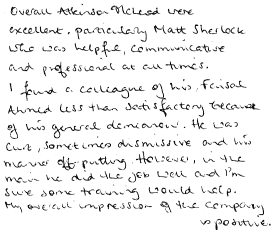 Overall Atkinson McLeod were
excellent, particularly Matt Sherlock
who was helpful, communicative
and professional at all times.
I found a colleague of his, Faisal
Ahmed less than satisfactory because
of his general demeanour. He was
Curt, sometimes dismissive and his
manner off-putting. However, in the
main he did the job well and I'm
sure some training would help.
My overall impression of the company
is positive.